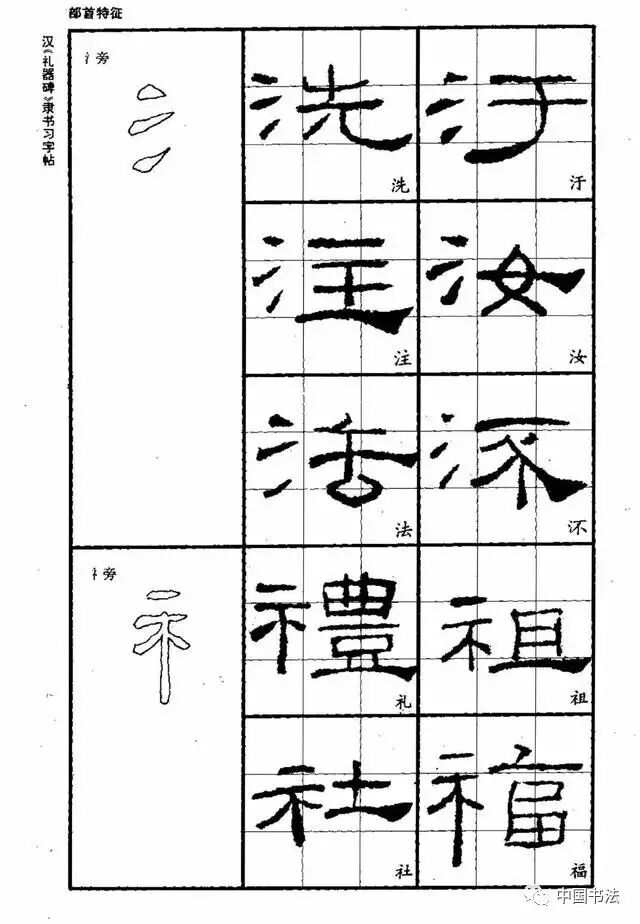 部首特征
汉《礼器碑》隶书习字帖
氵旁
洗 汙
洗 汙
注 汝
注 汝
法 沶
法 沶
礻旁
禮 祖
礼 祖
社 福
社 福
中国书法